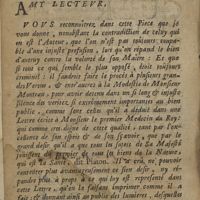 AMY LECTEUR,
VOUS reconnoitrez, dans cette Piece que je
vous donne, nonobstant la contradiction de celuy qui
en est l'Auteur, que l'on n'est pas toûjours coupa-
ble d'une injuste pression, lors qu'on répand le bien
d'autruy contre la volonté de son Maître: Et que
si tout ce qui semble le plus opposé, étoit toûjours
criminel; il faudroit faire le procés à plusieurs gran-
des Vertus, & sur tout à la Modestie de Monsieur
Montreau, pour avoir detenu dans un si long & injuste
silence des veritez, si extremement importantes au bien
public, comme sont celles qu'il a déduit dans une
Lettre écrite à Monsieur le premier Medecin du Roy:
qui comme tres-digne de cette qualité, tant par l'ex-
cellence de son esprit & de son sçavoir, que par le
grand desir qu'il a que tous les sujets de Sa Majesté
jouissent du premier de tous les biens de la Nature,
qui est la Santé, dit
ne pouvoir
remettre plus avantageusement ce sien desir, ny ren-
dre plus
à ce qui luy est representé dans
cette Lettre, qu'en la faisant imprimer comme il a
fait, & donnant ainsi au public des lumieres, desquelles